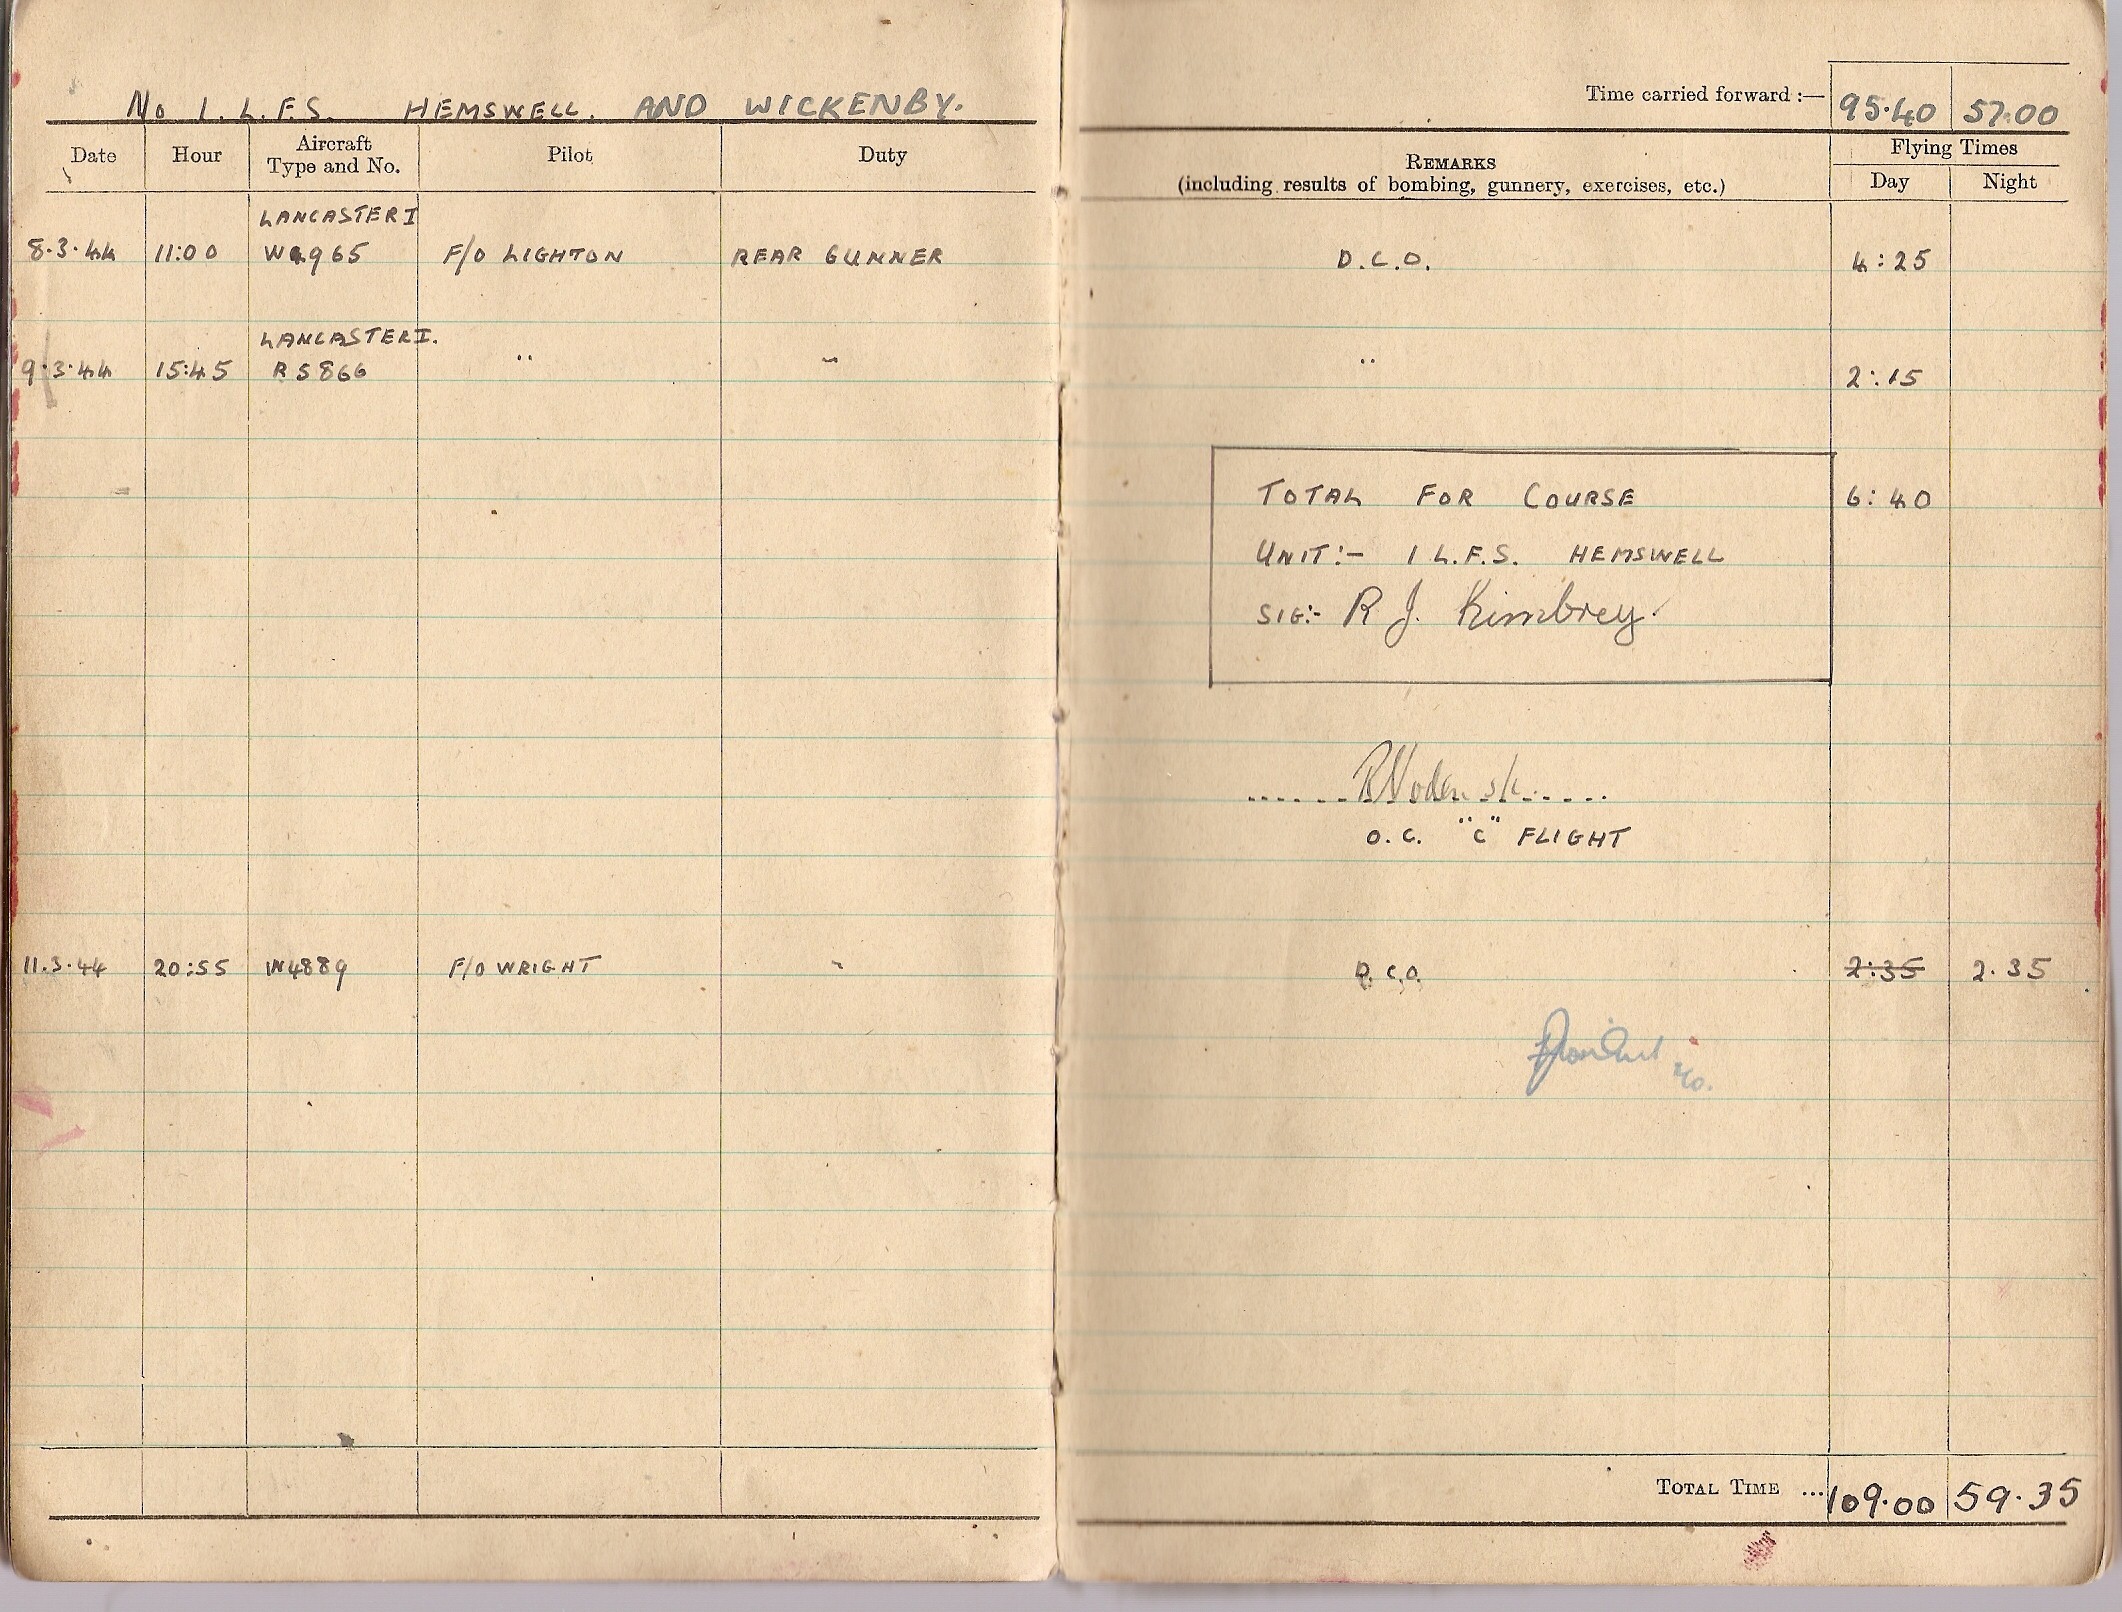 No 1. L.F.S. HEMSWELL. AND WICKENBY.
Date Hour Aircraft Type and No. Pilot Duty
LANCASTER I
8.3.44 11:00 W4965 F/O LIGHTON REAR GUNNER
LANCASTER I.
9.3.44 15:45 R5866 " "
11.3.44 20:55 W4889 F/O WRIGHT "
Time carried forward :— 95.40 57.00
REMARKS
(including results of bombing, gunnery, exercises, etc.)
Flying Times
Day Night
D.C.O. 4:25
" 2:15
TOTAL FOR COURSE 6:40
UNIT:- 1 L.F.S. HEMSWELL
SIG:- R J. Kimbrey.
O.C. "C" FLIGHT
D.C.O. 2:35 2.35
TOTAL TIME ... 109.00 59.35